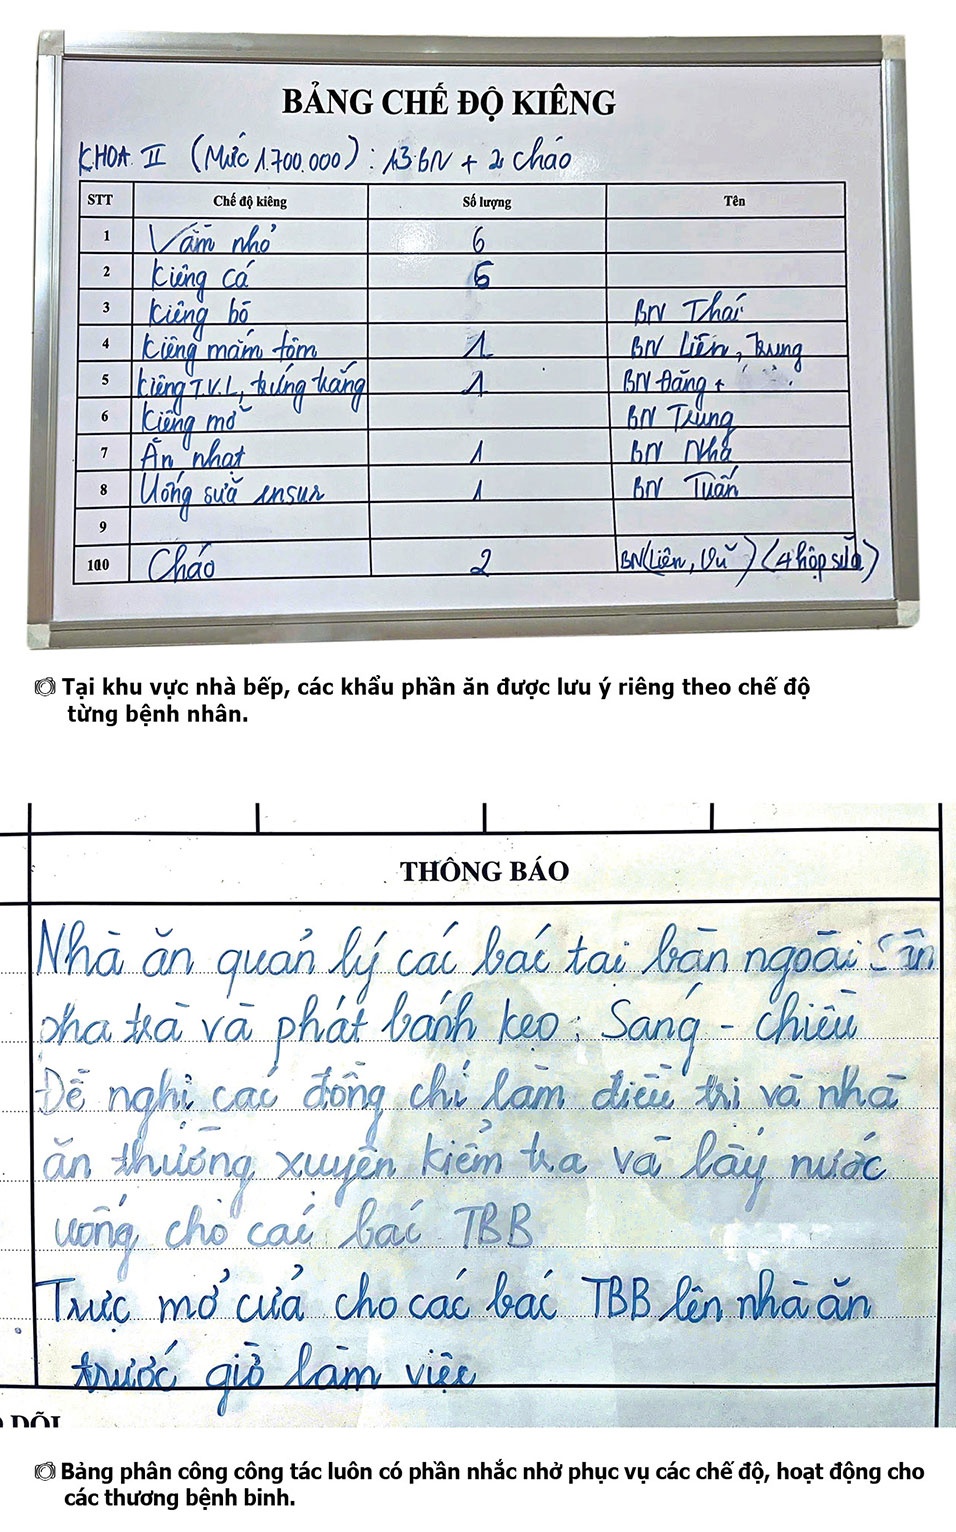 BẢNG CHẾ ĐỘ KIÊNG
KHOA II (Mức 1.700.000): 13 BN + 2 cháo
STT Chế độ kiêng Số lượng Tên
1 Vằm nhỏ 6
2 Kiêng cá 6
3 Kiêng bò BN Thái
4 Kiêng mắm tôm 1 BN Liên, Trung
5 Kiêng T.V.L, trứng tráng 1 BN Đăng +
6 Kiêng mỡ BN Trung
7 Ăn nhạt 1 BN Nhã
8 Uống sữa ensur 1 BN Tuấn
9
100 Cháo 2 BN (Liên, Vũ) (4 hộp sữa)
Tại khu vực nhà bếp, các khẩu phần ăn được lưu ý riêng theo chế độ
từng bệnh nhân.
THÔNG BÁO
Nhà ăn quản lý các bác tại bàn ngoài sân
pha trà và phát bánh kẹo: Sáng - chiều
Đề nghị các đồng chí làm điều trị và nhà
ăn thường xuyên kiểm tra và lấy nước
uống cho các bác TBB
Trực mở cửa cho các bác TBB lên nhà ăn
trước giờ làm việc
DÕI
Bảng phân công công tác luôn có phần nhắc nhở phục vụ các chế độ, hoạt động cho
các thương bệnh binh.